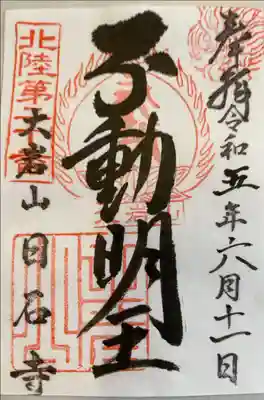 奉拝
令和五年六月十一日
不動明王
北陸第
大岩山
日石寺